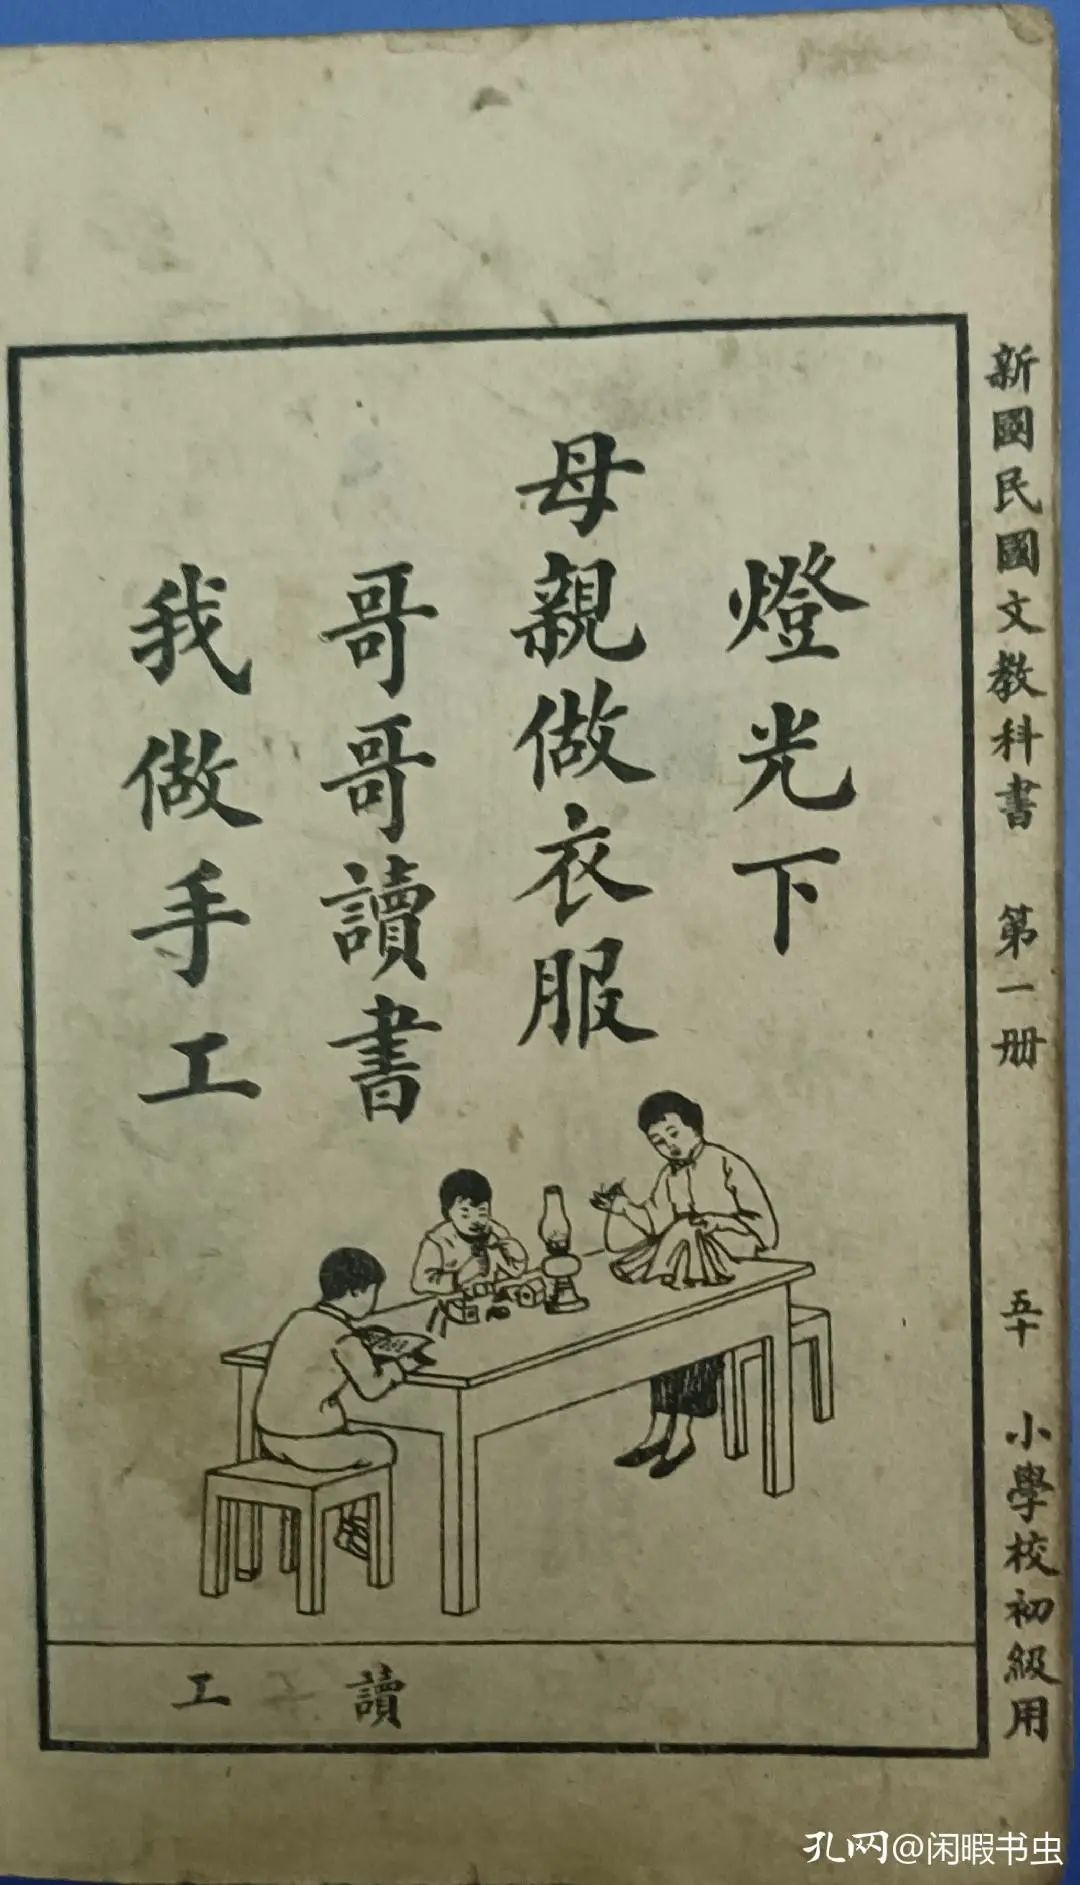 新國民國文教科書 第一册 五十 小學校初級用
燈光下
母親做衣服
哥哥讀書
我做手工
讀 工
孔网@闲暇书虫